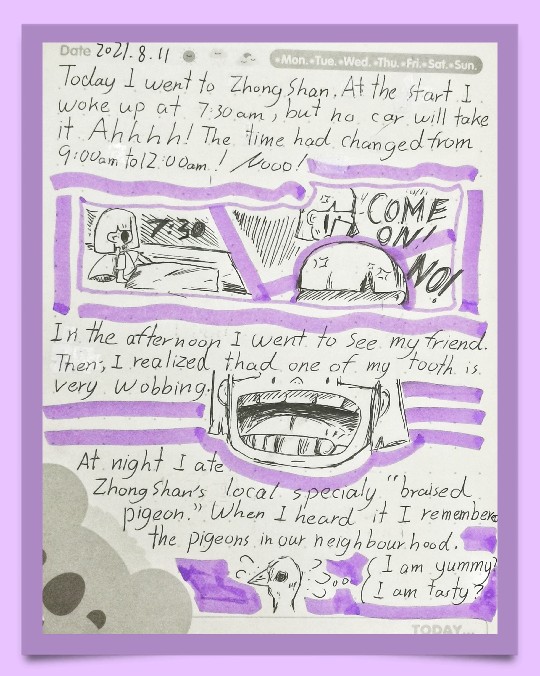 Date 2021.8.11
•Mon.•Tue.•Wed.•Thu.•Fri.•Sat.•Sun.
Today I went to ZhongShan. At the start I
woke up at 7:30am, but no car will take
it Ahhhh! The time had changed from
9:00am to 12:00am! Nooo!
7:30
COME
ON!
NO!
In the afternoon I went to see my friend.
Then, I realized thad one of my tooth is
very wobbing.
At night I ate
ZhongShan's local specialy "braised
pigeon." When I heard it I remembere
the pigeons in our neighbourhood.
I am yummy?
I am tasty?
TODAY...